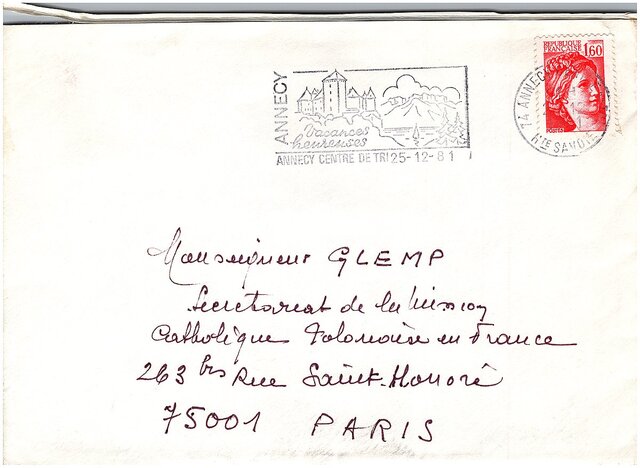 REPUBLIQUE
FRANÇAISE 1,60
POSTES
74 ANNECY
Hte SAVOIE
ANNECY
Vacances
heureuses
ANNECY CENTRE DE TRI 25-12-81
Monseigneur GLEMP
Secretariat de la Mission
Catholique Polonaise en France
263 bis Rue Saint-Honoré
75001 PARIS